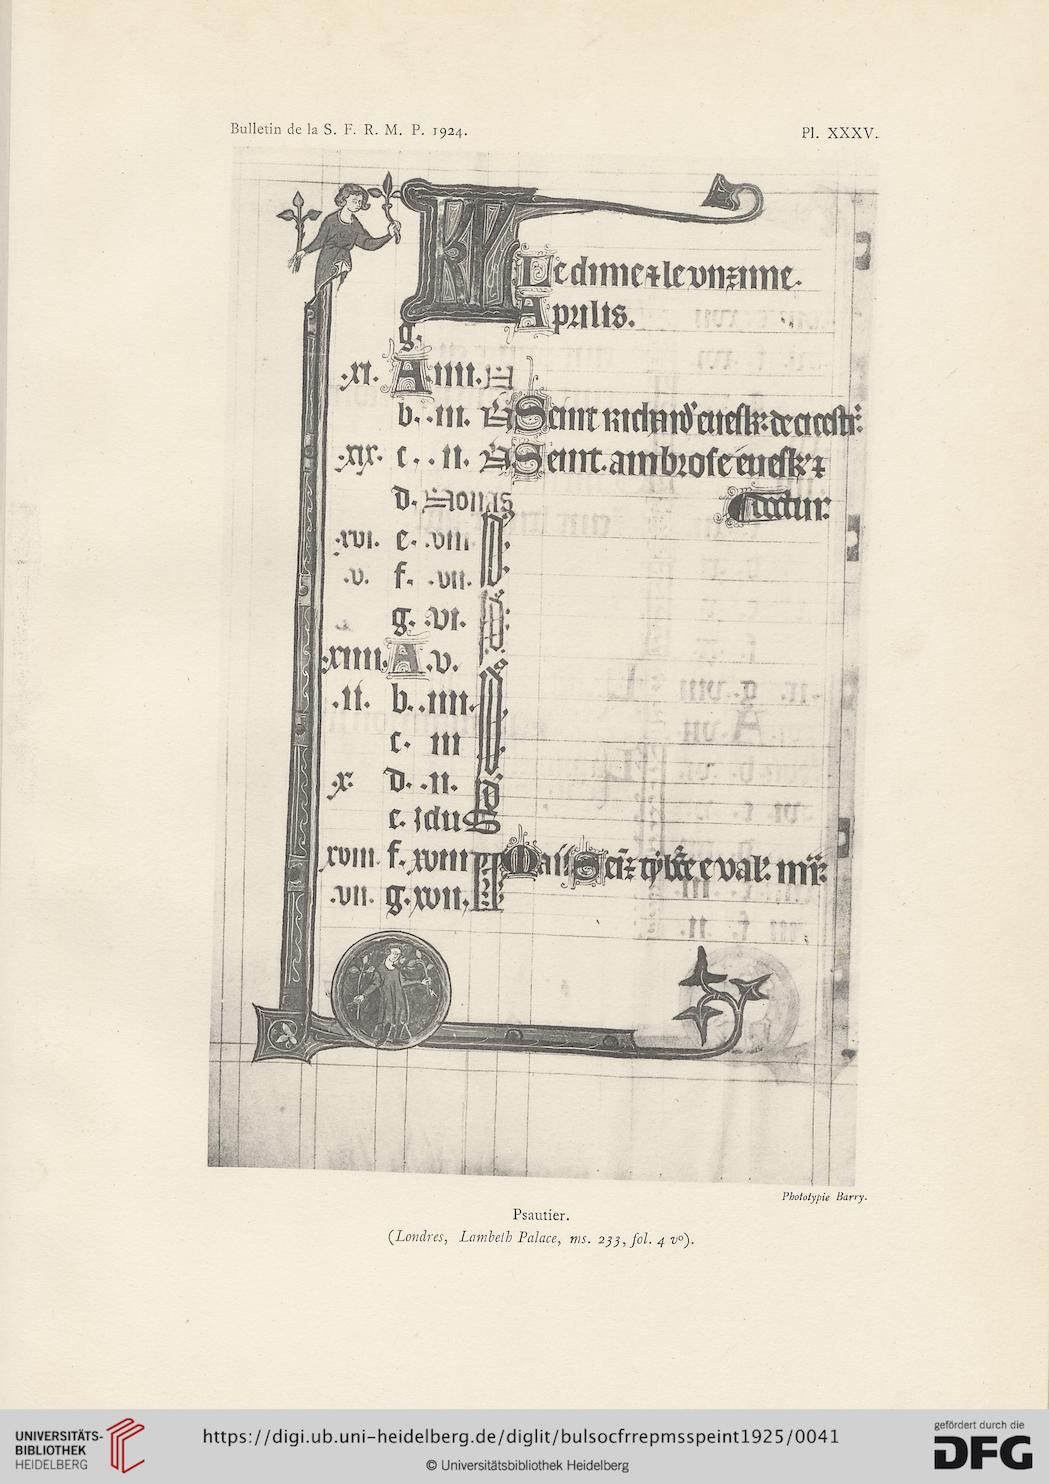 Bulletin de la S. F. R. M. P. 1924.
Pl. XXXV.
KL Le dime ⁊ le vnzime.
Aprilis.
g.
.xi. A iiii. N
b. .iii. N Seint Richard euesk: de cicestr:
.xix. c. .ii. N Seint ambrose euesk' ⁊
d. Nonas
doctur:
.xvi. e. .viii Id
.v. f. .vii. Id
g. .vi. Id
.xiiii. A .v. Id
.ii. b. .iiii. Id
c. iii Id
.x. d. .ii. Id
e. Idus
xviii f. xviii kl Maii Seīz e val' mr̄:
.vii. g. xvii. kl
Phototypie Barry.
Psautier.
(Londres, Lambeth Palace, ms. 233, fol. 4 vº).
UNIVERSITÄTS-
BIBLIOTHEK
HEIDELBERG
https://digi.ub.uni-heidelberg.de/diglit/bulsocfrrepmsspeint1925/0041
© Universitätsbibliothek Heidelberg
gefördert durch die
DFG